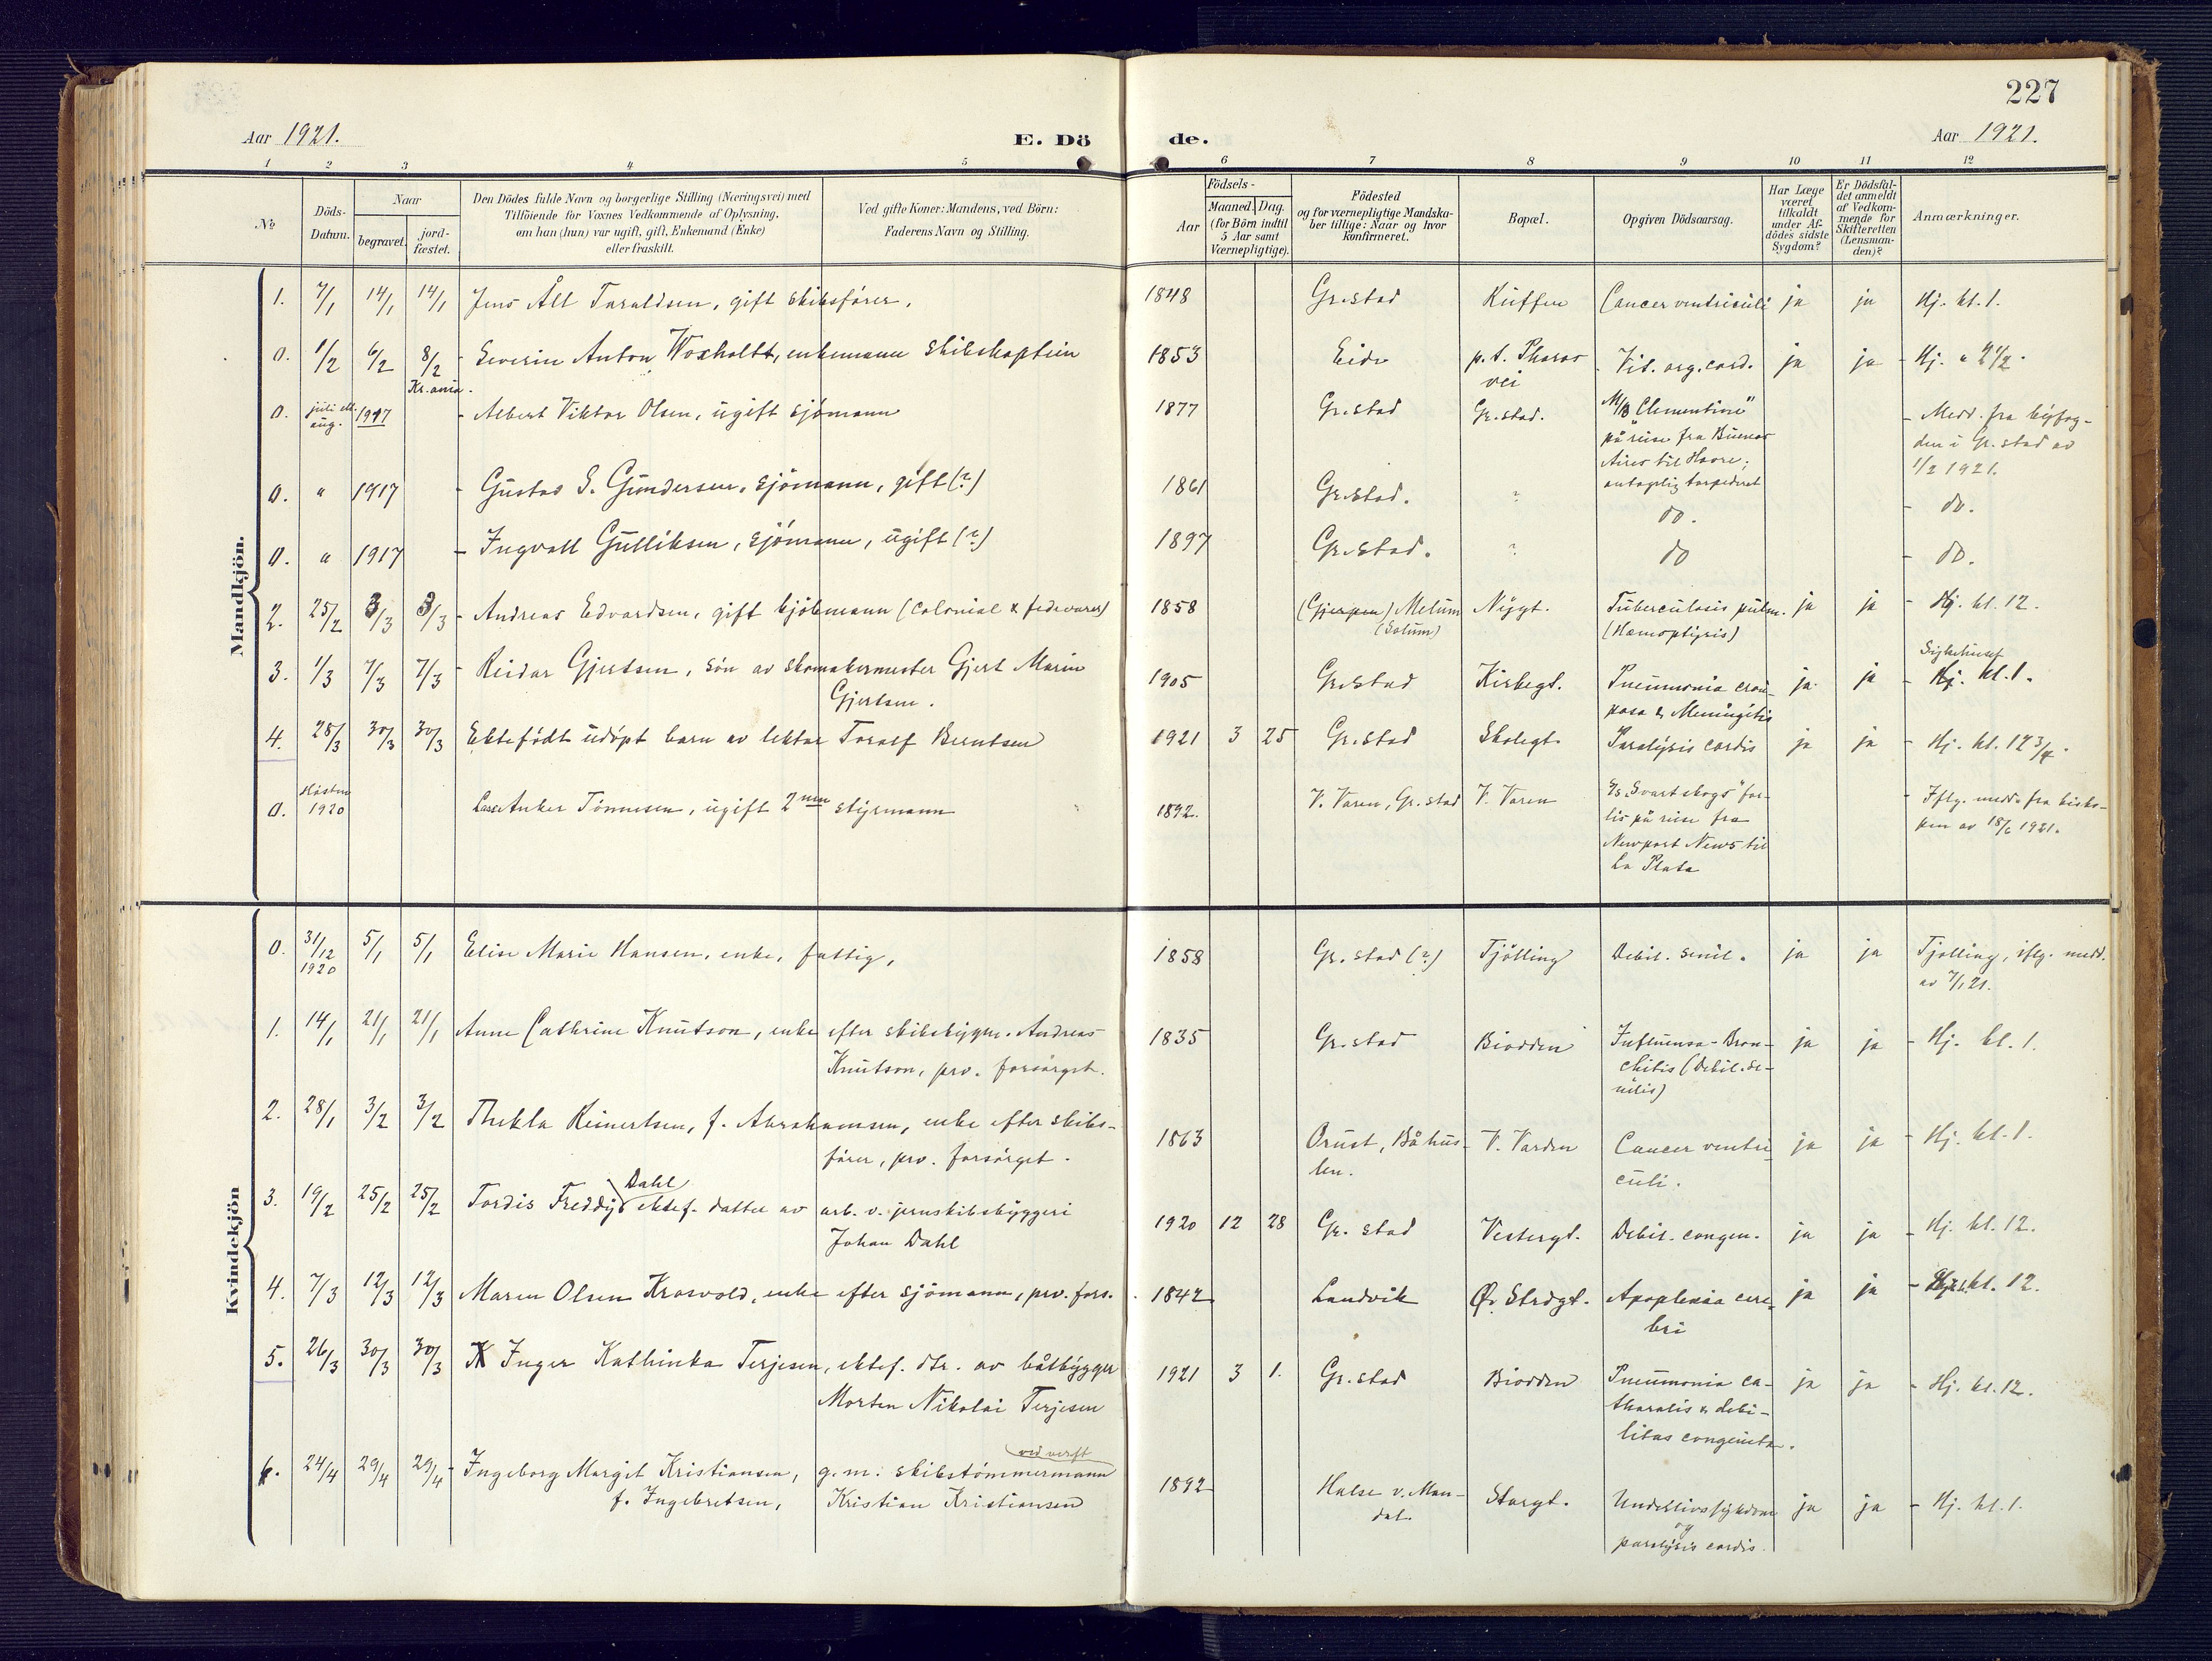 227
Aar 1921.
E. Dö
de.
Aar 1921.
1 2 3 4 5 6 7 8 9 10 11 12
No
Döds-
Datum.
Naar
begravet.
jord-
fæstet.
Den Dödes fulde Navn og borgerlige Stilling (Næringsvei) med
Tilföiende for Voxnes Vedkommende af Oplysning,
om han (hun) var ugift, gift, Enkemand (Enke)
eller fraskilt.
Ved gifte Koner: Mandens, ved Börn:
Faderens Navn og Stilling.
Födsels-
Aar
Maaned.
Dag.
(for Börn indtil
5 Aar samt
Værnepligtige).
Födested
og for værnepligtige Mandska-
ber tillige: Naar og hvor
konfirmeret.
Bopæl.
Opgiven Dödsaarsag.
Har Læge
været
tilkaldt
under Af-
dödes sidste
Sygdom?
Er Dödsfal-
det anmeldt
af Vedkom-
mende for
Skifteretten
(Lensman-
den)?
Anmærkninger.
Mandkjön.
1. 7/1 14/1 14/1 Jens Alt Taraldsen, gift skibsfører. 1848 Gr.stad Kuffen Cancer ventriculi ja ja Hj. kl. 1.
0. 1/2 6/2 8/2 - Severin Anton Woxholtt, enkemann skibskaptein 1853 Eide p.t. Pharos ja ja - Hj. " 2 1/2.
Kr.ania.
vei
Vit. org. cord.
0. juli ell. 1917 - Albert Viktor Olsen, ugift sjømann 1877 Gr.stad Gr.stad. M/B "Clementine" - Medd. fra byfog-
aug.
på reise fra Buenos
den i Gr.stad av
Aires til Havre;
1/2 1921.
antagelig torpedert
0. " 1917 - Gustav S. Gundersen, sjømann, gift (?) 1861 Gr.stad. ? do. - do.
0. " 1917 - Ingvald Gulliksen, sjømann, ugift (?) 1897 Gr.stad. ? do - do.
2. 25/2 3/3 3/3 - Andreas Edvardsen, gift kjøbmann (colonial & fedevarer) 1858 (Gjerpen) Melum Nygt. Tuberculosis pulm. ja ja - Hj. kl. 12.
(Solum)
(Hæmoptysis)
3. 1/3 7/3 7/3 - Reidar Gjertsen, søn av skomakermester Gjert Marin 1905 Gr.stad Kirkegt. Pneumonia crou- ja ja - Hj. kl. 1.
Sykehuset
Gjertsen.
posa & Meningitis
4. 28/3 30/3 30/3 Ektefødt udøpt barn av lektor Toralf Berntsen 1921 3 25 Gr.stad Skolegt. Paralysis cordis ja ja - Hj. kl. 12 3/4.
0. Høsten
1920
Lars Anker Tönnesen, ugift 2nen styrmann 1892. V. Varen, Gr.stad V. Varen "Svartskogs" for-
lis på reise fra
Newport News til
La Plata
- Iflg. medd. fra bisko-
pen av 18/6 1921.
Kvindekjön
0. 31/12
1920
5/1 5/1 Elise Marie Hansen, enke, fattig, 1858 Gr.stad (?) Tjölling Debil. senil. ja ja Tjölling, iflg. medd.
av 7/1 21.
1. 14/1 21/1 21/1 Anne Cathrine Knutson, enke efter skibsbygm. Andreas 1835 Gr.stad Biodden Influensa-Bron- ja ja - Hj. kl. 1.
Knutson, prv. forsørget.
chitis (Debil. se-
nilis)
2. 28/1 3/2 3/2 Thekla Reinertsen, f. Abrahamsen, enke efter skibs- 1863 Orust, Båhus- V. Varden Cancer ventri- ja ja - Hj. kl. 1.
fører, prv. forsørget.
len.
culi.
3. 19/2 25/2 25/2 Tordis Freddy Dahl ektef. datter av arb. v. jernskibsbyggeri 1920 12 28 Gr. stad Vestergt. Debil. congen. ja ja - Hj. kl. 12.
Johan Dahl
4. 7/3 12/3 12/3 Maren Olsen Krosvold, enke efter sjømann, prv. fors. 1842 Landvik Ø. Strdgt. Apoplexia cere- ja ja - kl. 12.
bri
5. 26/3 30/3 30/3 Inger Kathinka Terjesen, ektef. dtr. av båtbygger 1921 3 1. Gr.stad Biodden Pneumonia ca- ja ja - Hj. kl. 12.
Morten Nikolai Terjesen
tharalis & debi-
litas congenita.
6. 24/4 29/4 29/4 - Ingeborg Margit Kristiansen, g.m. skibstømmermann ved verft 1892 Halse v. Man- Storgt. Underlivssykdom ja ja - Hj. kl. 1.
f. Ingebretsen, Kristian Kristiansen
dal.
og
paralysis cordis.